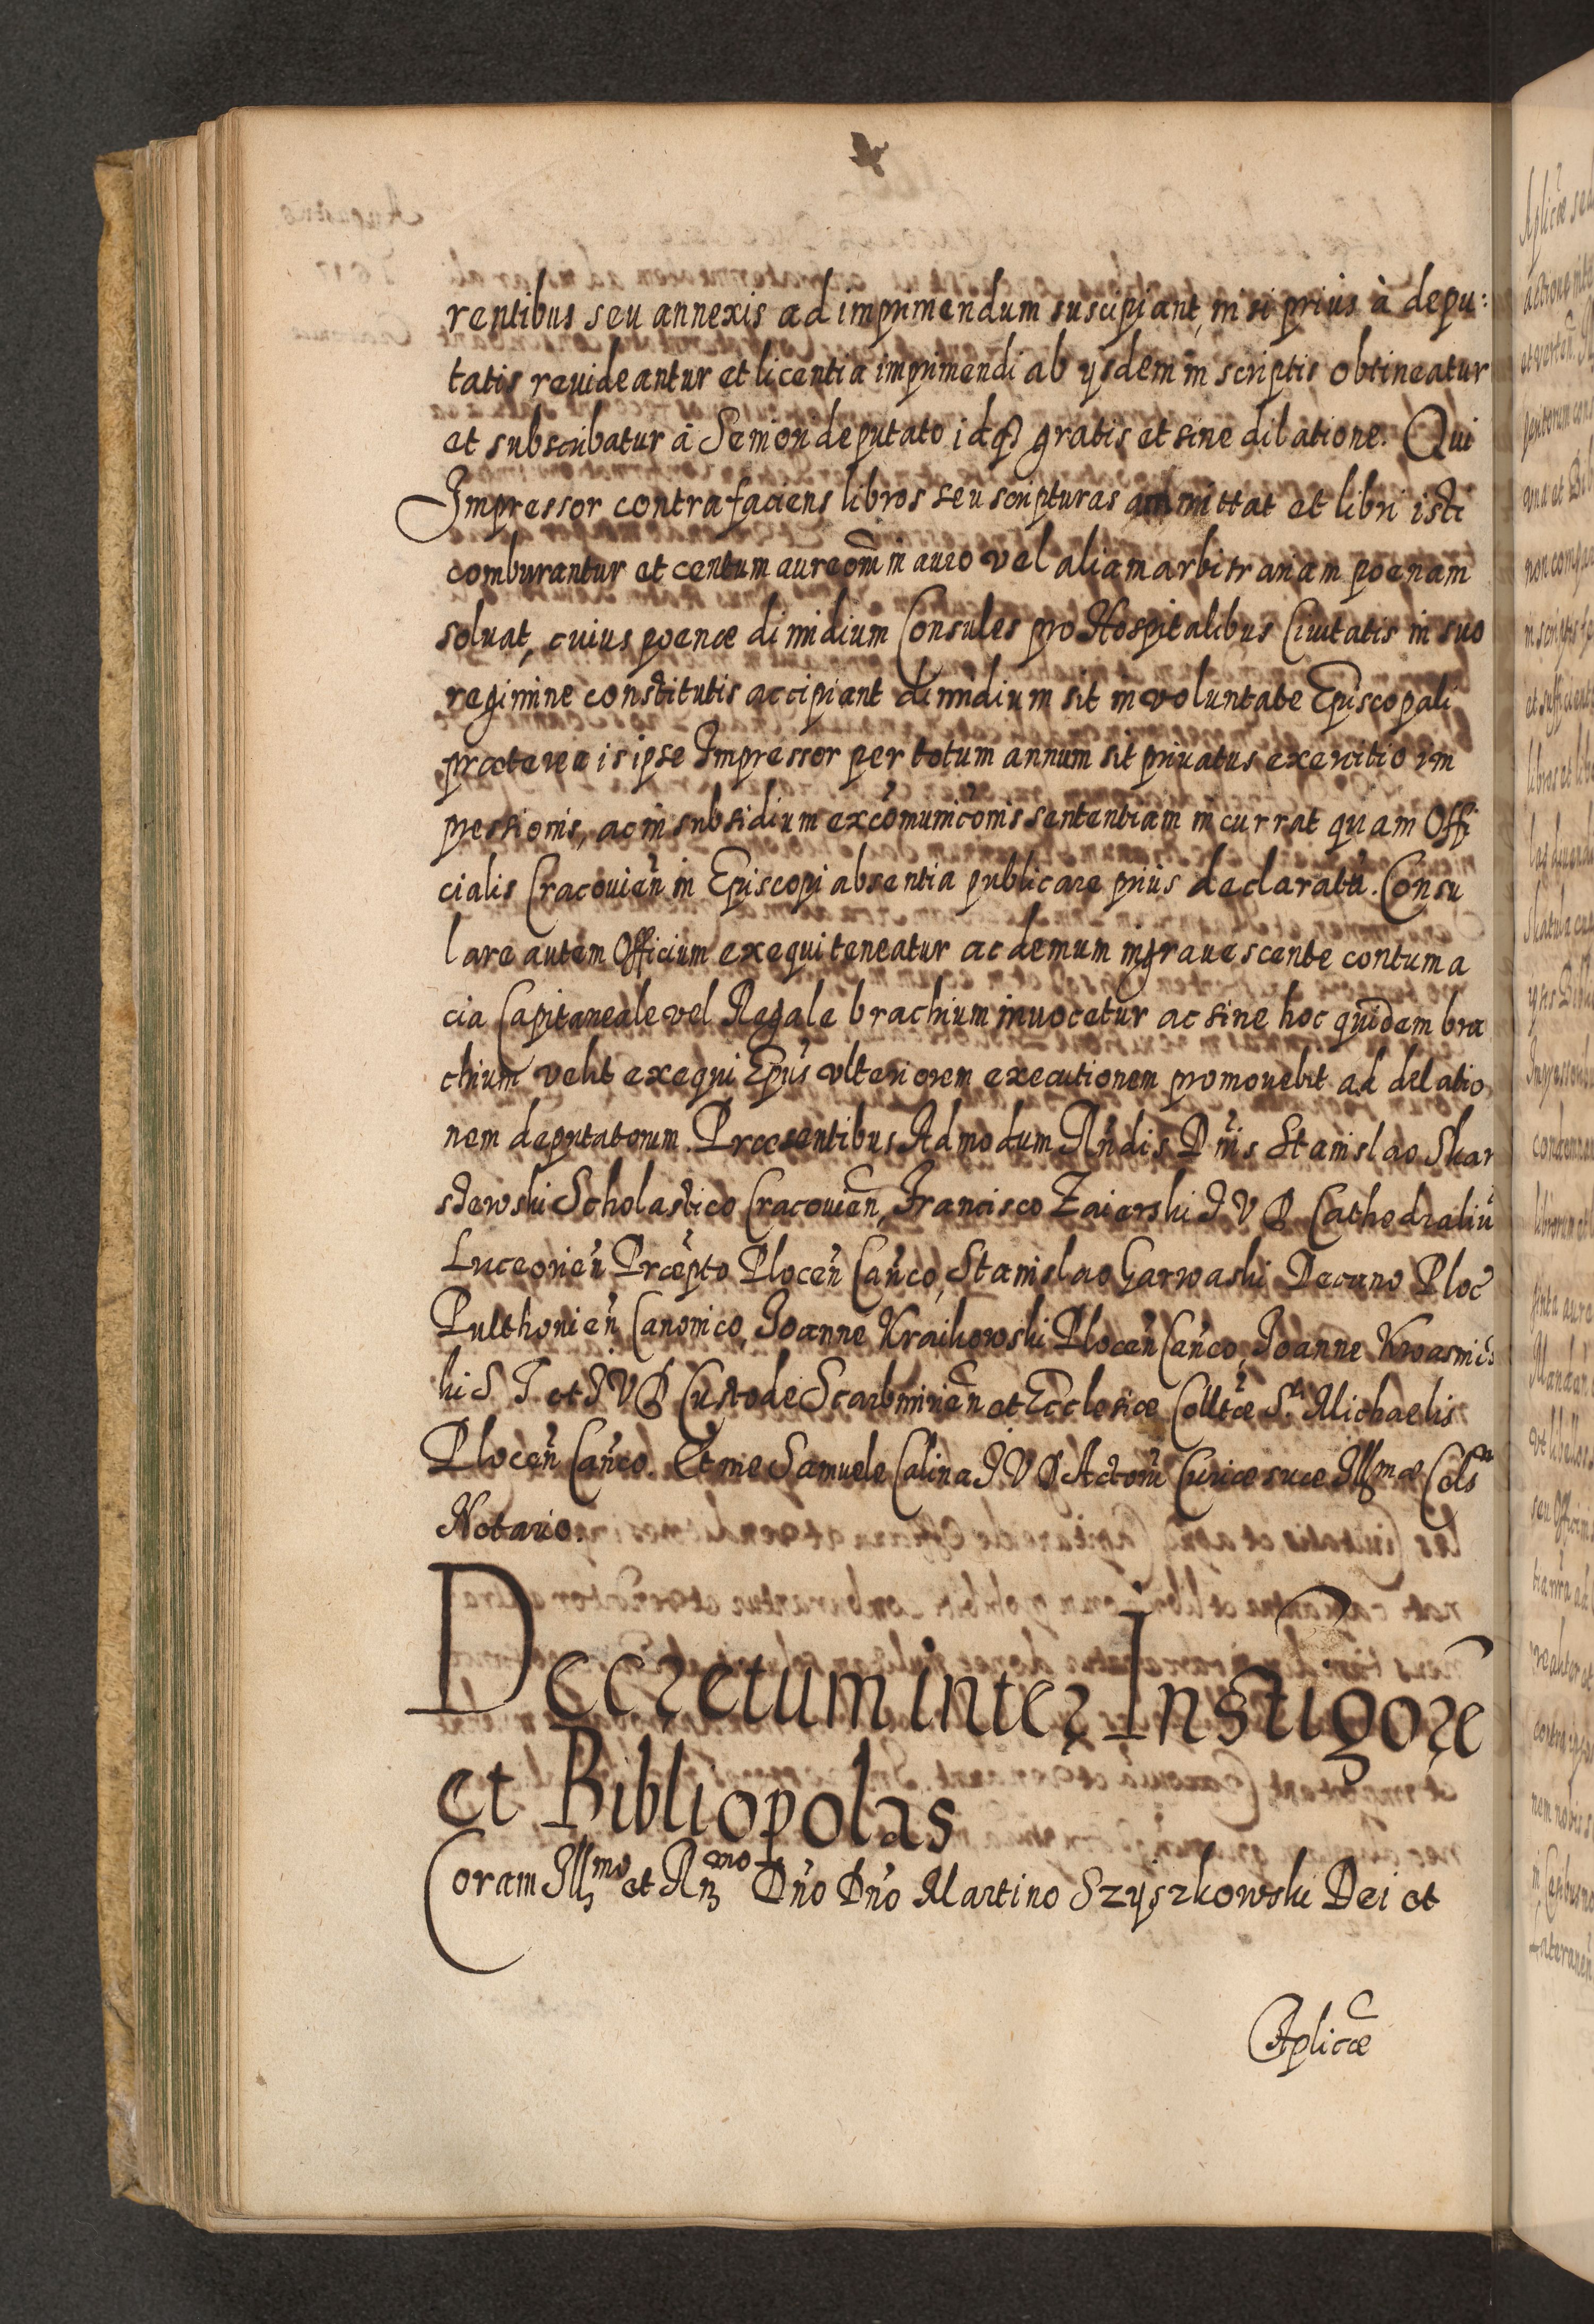 rentibus seu annexis ad imprimendum suscipiant, nisi prius à depu:
tatis reuideantur et licentia imprimendi ab ysdem in scriptis obtineatur
et subscribatur à Seniori deputato idq3 gratis et sine dilatione. Qui
Impressor contrafaciens libros seu scripturas ammittat et libri isti
comburantur et centum aureoru̅ in auro vel aliam arbitrariam poenam
soluat, cuius poenæ dimidium Consules pro Hospitalibus Ciuitatis in suo
regimine constitutis accipiant dimidium sit in voluntate Episcopali
præterea is ipse Impressor per totum annum sit priuatus exercitio im
pressionis, ac in subsidium exco̅municōnis sententiam incurrat quam Offi
cialis Cracouien̄ in Episcopi absentia publicare prius declaratū. Consu
lare autem Officium exequi teneatur ac demum ingrauescente contuma
cia Capitaneale vel Regale brachium inuocetur ac sine hoc quidem bra
chium velit exequi Ep̄us vlteriorem executionem promouebit ad delatio
nem deputatorum. Præsentibus Admodum Rn̄dis Dn̄is Stanislao Skar
szewski Scholastico Cracouien̄, Francisco Zaierski I V D Cathedraliū
Luceorien̄ Præpto Plocen̄ Can̄co, Stanislao Garwaski Decano Ploc̄
Pulthouien̄ Canonico, Ioanne Kraikowski Plocen̄ Can̄co, Ioanne Kwasnic
ki S T et I V D Custode Scarbimirien̄ et Ecclesiæ Coll̄tæ Sti Michaelis
Plocen̄ Can̄co. Et me Samuele Calina I V D Actoru̅ Curiæ suæ Illmæ Cels
Notario.
Decretum inter Instigore̅
et Bibliopolas
Coram Illmo et Rmo Dn̄o Dn̄o Martino Szyszkowski Dei et
Aplicæ